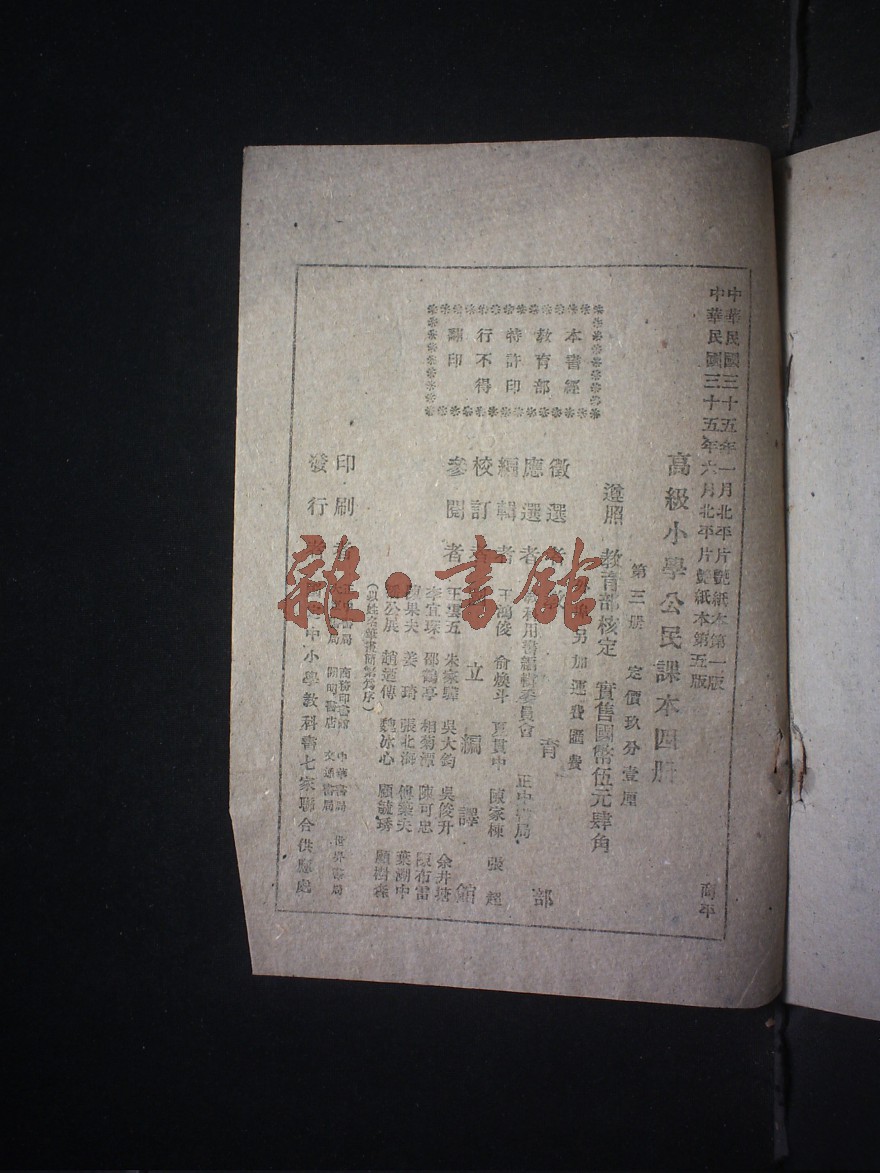 中華民國三十五年一月北平片艶紙本第一版
中華民國三十五年六月北平片艶紙本第五版
商平
高級小學公民課本四冊
第三册 定價玖分壹厘
遵照 教育部核定 實售國幣伍元肆角
另加運費匯費
本書經
教育部
特許印
行不得
翻印
徵選 育 部
應選者 用書編輯委員會 正中書局
編輯者 王鴻俊 俞煥斗 夏貫中 陳家棟 張超
校訂 立編譯館
參閱者 王雲五 朱家驊 吳大鈞 吳俊升 余井塘
李宜琛 邵鶴亭 相菊潭 陳可忠 陳布雷
果夫 姜琦 張北海 傅築夫 葉溯中
公展 趙廼傳 魏冰心 顧毓琇 顧樹森
(以姓名筆畫簡繁爲序)
印刷 書局 商務印書館 中華書局 世界書局
書局 開明書店 交通書局
發行 中小學教科書七家聯合供應處
雜·書館